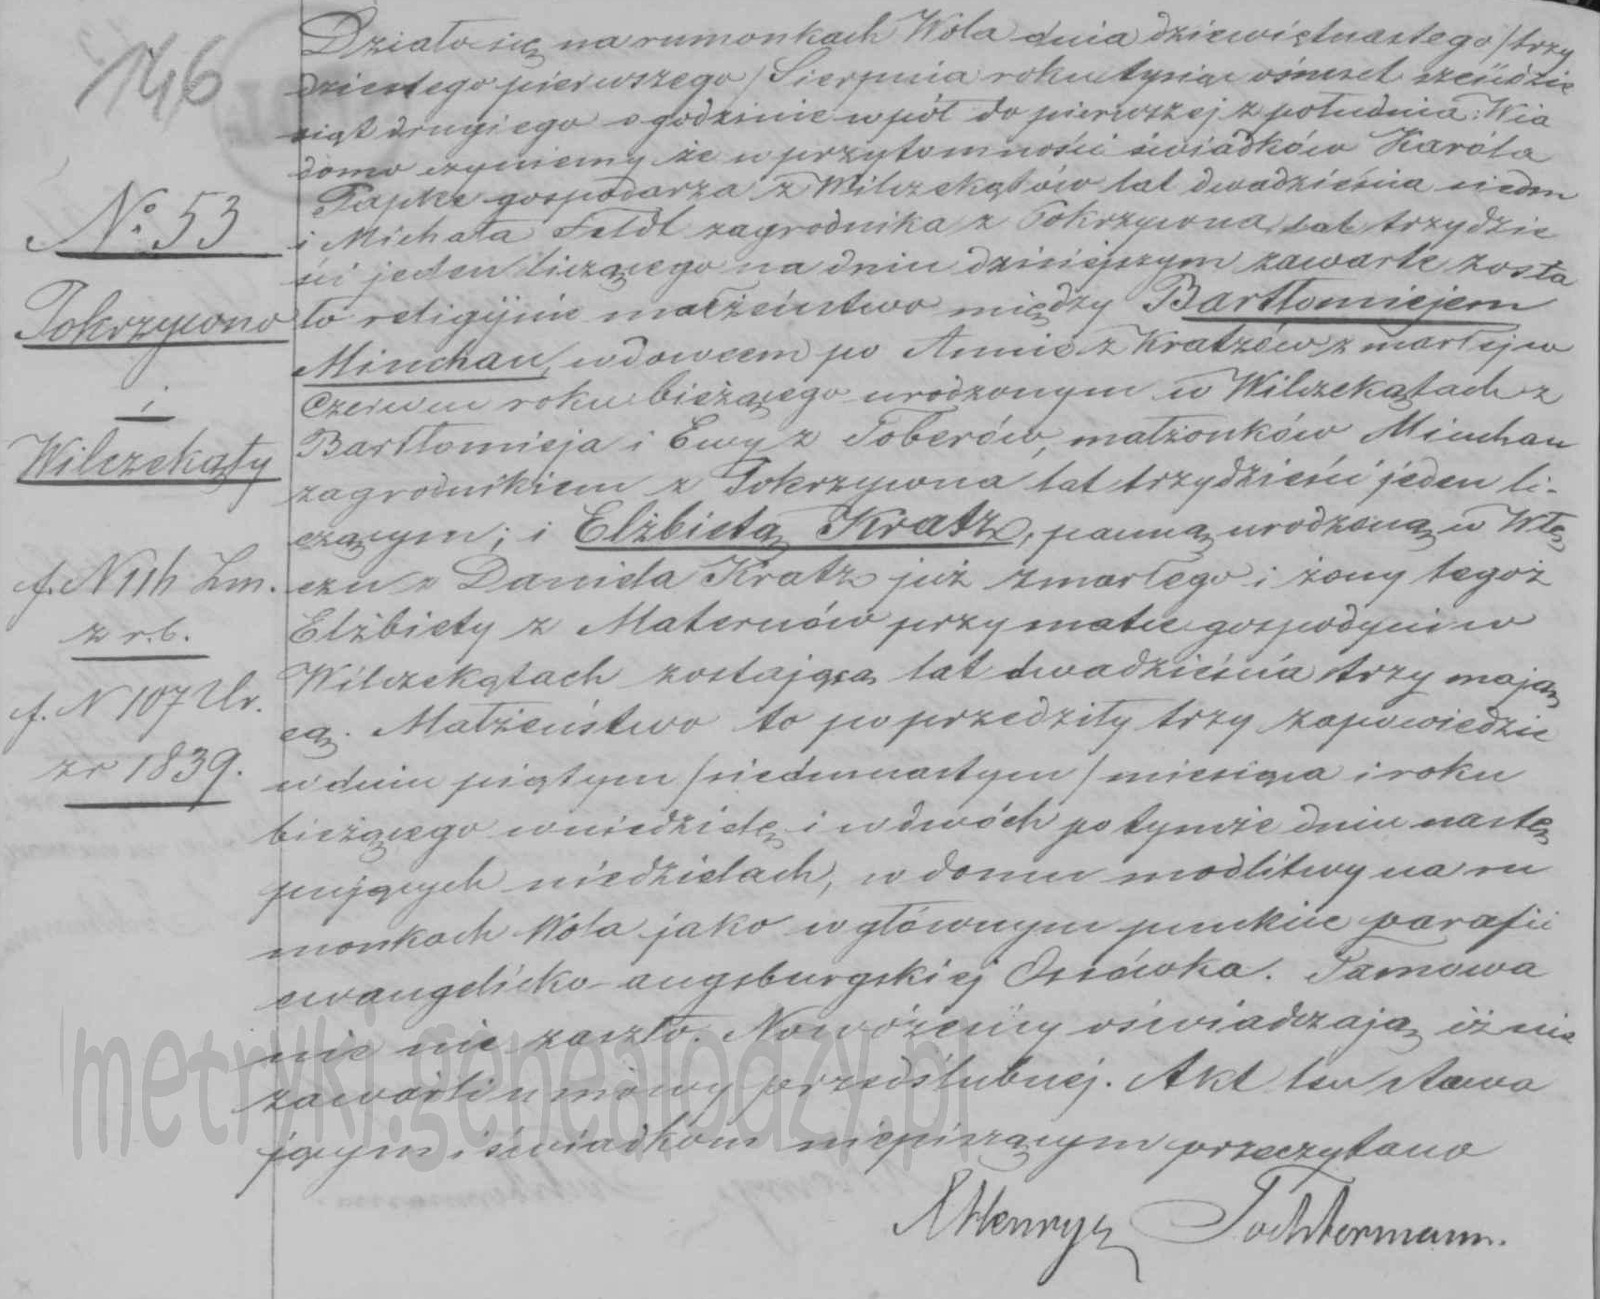 146
Działo się na rumonkach Wola dnia dziewiętnastego /trzy
dziestego pierwszego/ Sierpnia roku tysiąc ośmset sześćdzie
siąt drugiego o godzinie wpół do pierwszej z południa: Wia
domo czyniemy że w przytomności świadków Karóla
Papke gospodarza z Wilczekątów lat dwadzieścia siedm
i Michała Feldt zagrodnika z Pokrzywna, lat trzydzie
ści jeden liczącego na dniu dzisiejszym zawarte zosta
ło religijnie małżeństwo między Bartłomiejem
Minchau, wdowcem po Annie z Kratzów zmarłej w
Czerwcu roku bieżącego urodzonym w Wilczekątach z
Bartłomieja i Ewy z Toberów, małżonków Minchau
zagrodnikiem z Pokrzywna lat trzydzieści jeden li-
czącym; i Elżbietą Kratz, panną urodzoną w Włę
czu z Daniela Kratz już zmarłego i żony tegoż
Elżbiety z Maternów przy matce gospodyni w
Wilczekątach zostającą lat dwadzieścia trzy mają
cą. Małżeństwo to poprzedziły trzy zapowiedzie
w dniu piątym /siedmnastym/ miesiąca i roku
bieżącego w niedzielę i w dwóch po tymże dniu nastę
pujących niedzielach, w domu modlitwy na ru
monkach Wola jako w głównym punkcie parafii
ewangelicko-augsburgskiej Ossówka. Tamowa
nie nie zaszło. Nowożeńcy oświadczają iż nie
zawarli umowy przedślubnej. Akt ten stawa
jącym i świadkom niepiszącym przeczytano
Henryk Tochtermann.
No. 53
Pokrzywno
i
Wilczekąty
f. N 114 Zm.
z r.b.
f. N 107 Ur.
z r 1839.
metryki.genealodzy.pl